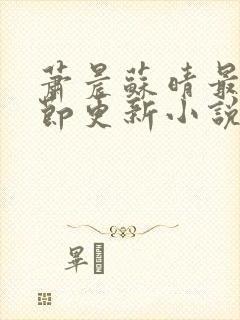 蕭晨蘇晴最
節更新小說
畢